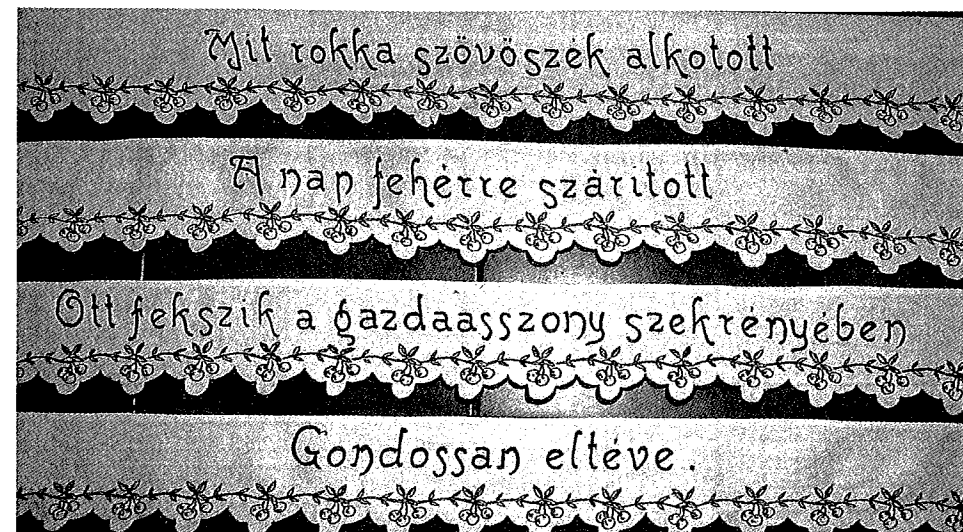 Mit rokka szövöszék alkotott
A nap fehérre szárított
Ott fekszik a gazdaasszony szekrényében
Gondossan eltéve.